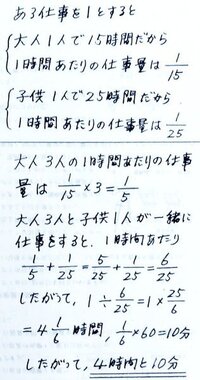 ある仕事を1とすると
大人1人で15時間だから
1時間あたりの仕事量は 1/15
子供1人で25時間だから
1時間あたりの仕事量は 1/25
大人3人の1時間あたりの仕事
量は 1/15 × 3 = 1/5
大人3人と子供1人が一緒に
仕事をすると、1時間あたり
1/5 + 1/25 = 5/25 + 1/25 = 6/25
したがって、1 ÷ 6/25 = 1 × 25/6
= 4 1/6 時間、1/6 × 60 = 10分
したがって、4時間と10分